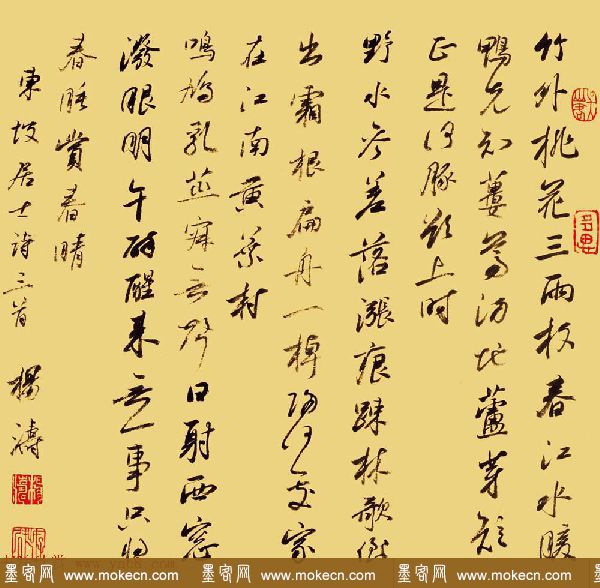 竹外桃花三兩枝春江水暖
鴨先知蔞蒿滿地蘆芽短
正是河豚欲上時
野水參差落漲痕疎林欹倒
出霜根扁舟一棹歸何處家
在江南黃葉村
鳴鳩乳燕寂無聲日射西窗
潑眼明午醉醒來無一事只將
春睡賞春晴
東坡居士詩三首 楊濤
墨客网 www.mokecn.com 墨客网 www.mokecn.com 墨客网 www.mokecn.com